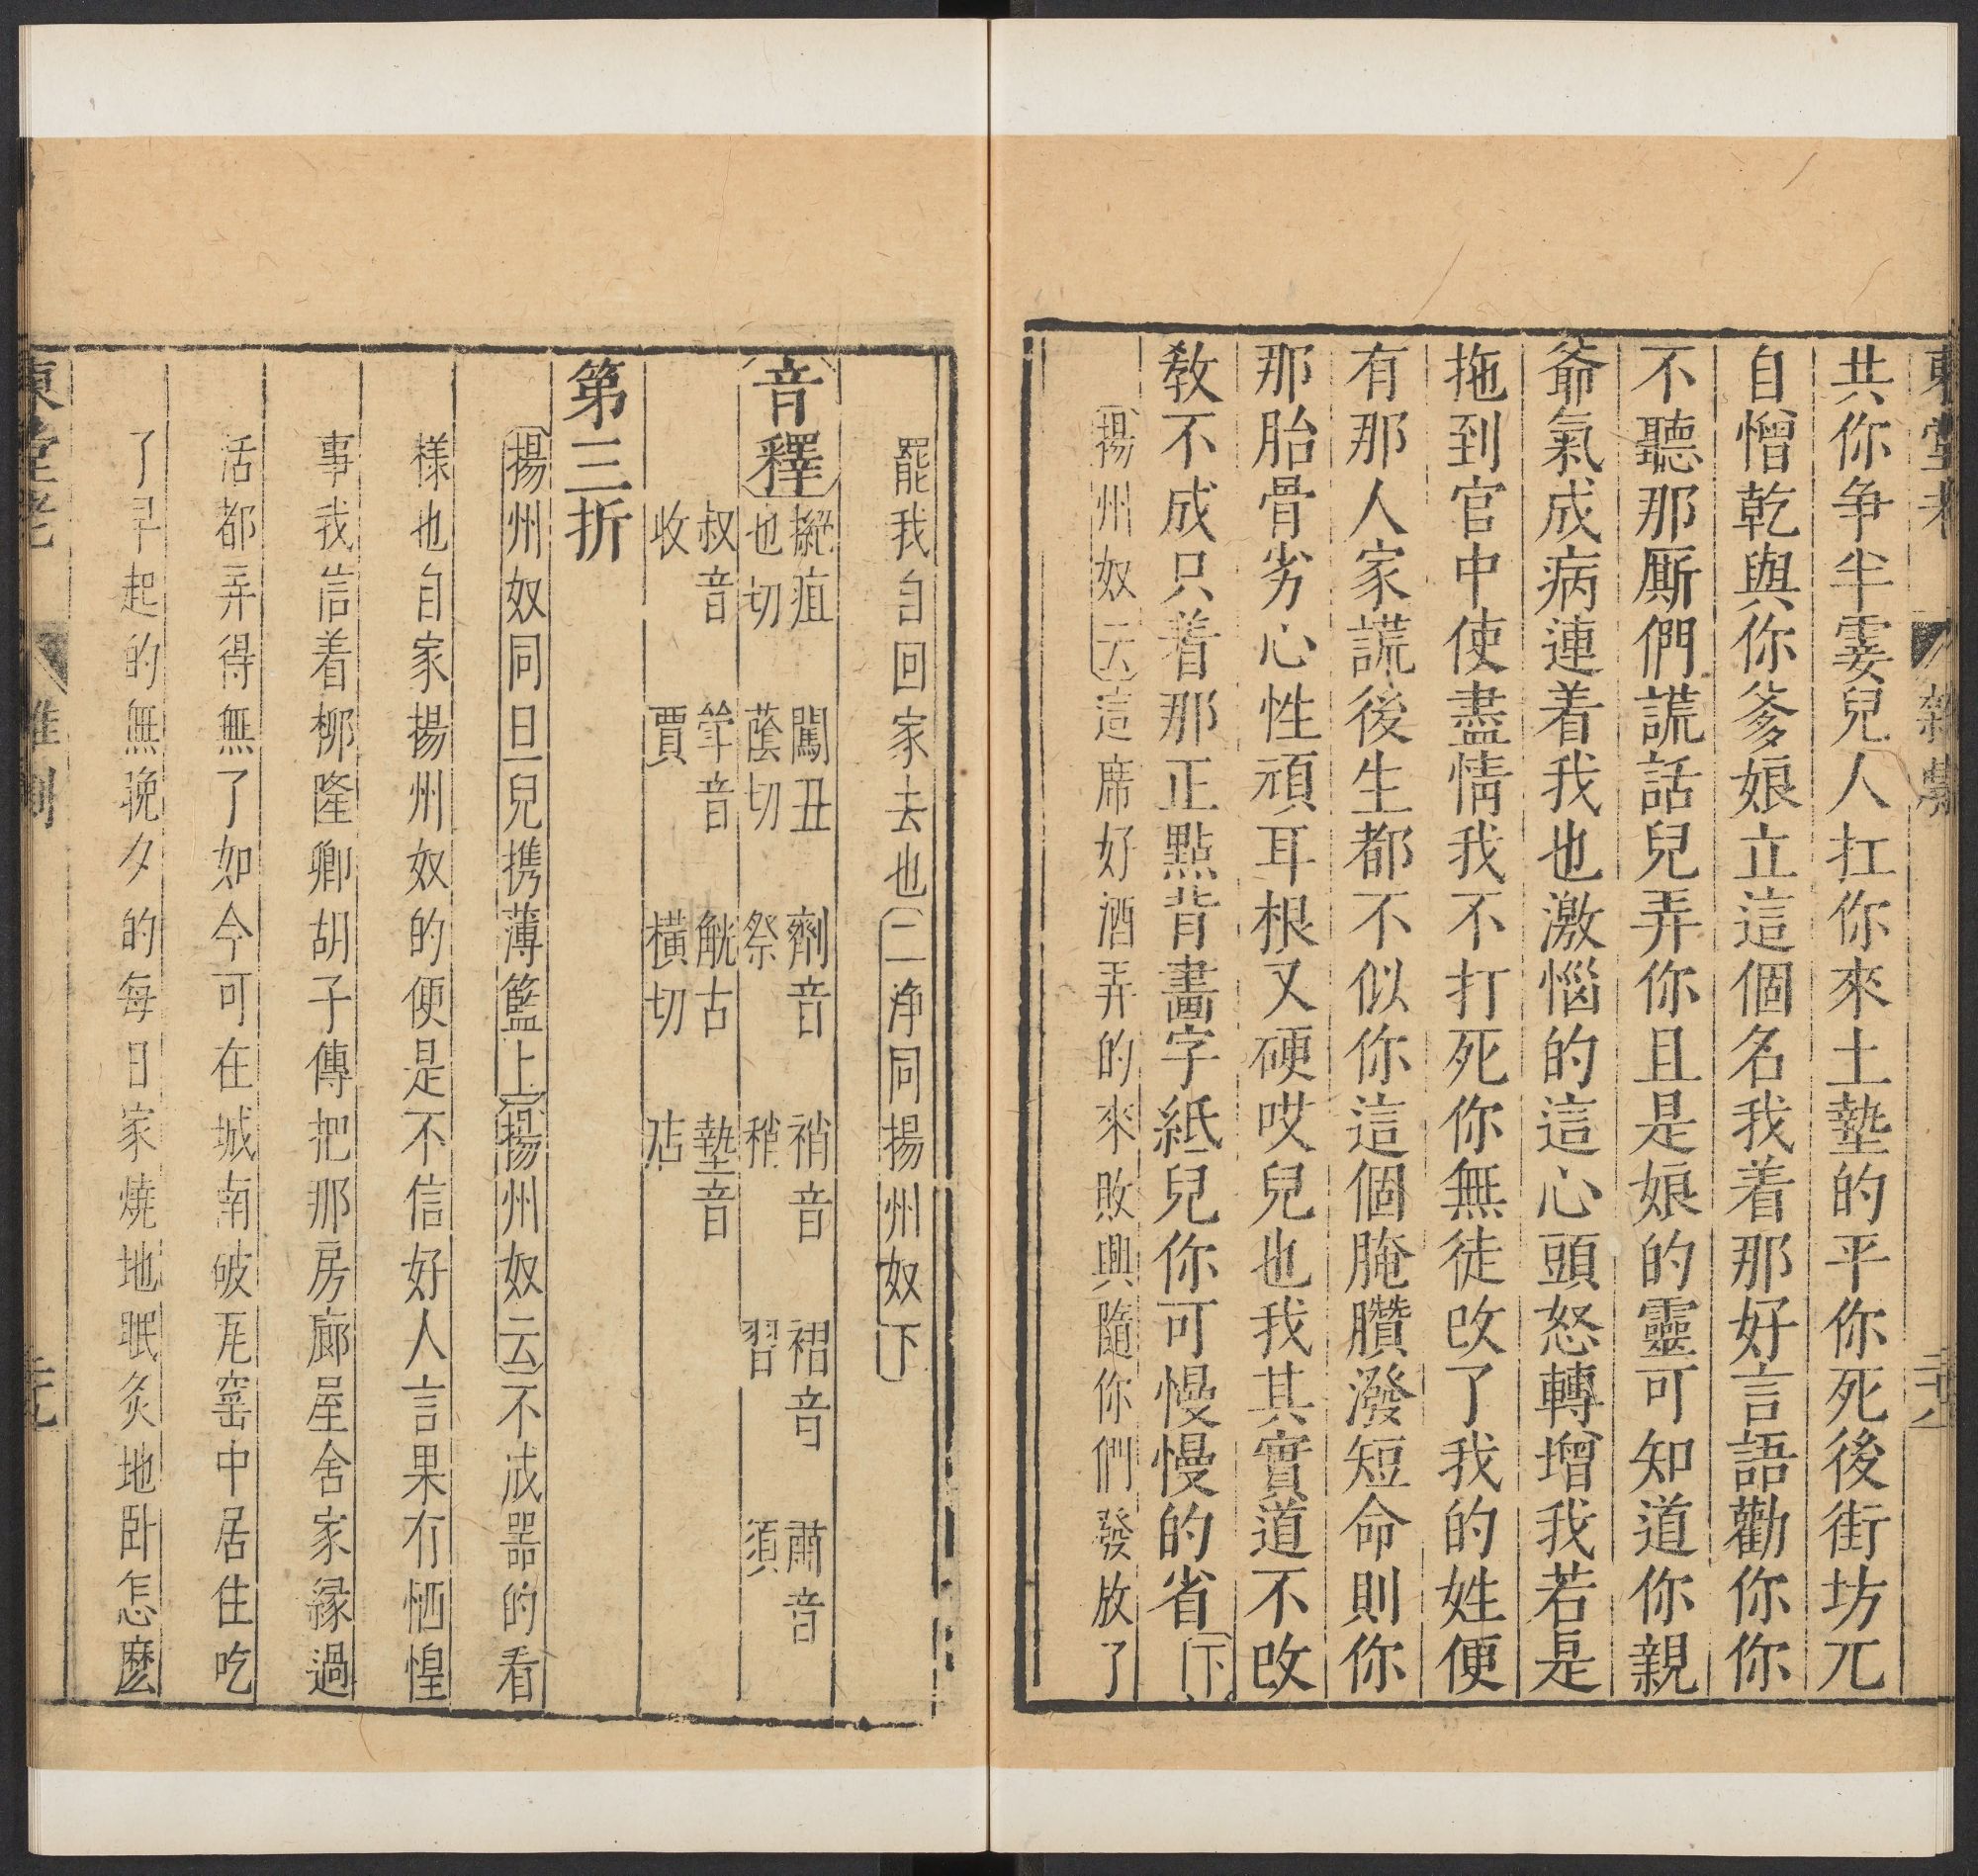 東堂老 雜劇 二十八
共你争半霎兒人扛你來土墊的平你死後街坊兀
自憎乾與你爹娘立這個名我着那好言語勸你你
不聽那厮們謊話兒弄你且是娘的靈可知道你親
爺氣成病連着我也激惱的這心頭怒轉增我若是
拖到官中使盡情我不打死你無徒改了我的姓便
有那人家謊後生都不似你這個腌臢潑短命則你
那胎骨劣心性頑耳根又硬哎兒也我其實道不改
教不成只着那正點背畫字紙兒你可慢慢的省(下)
(揚州奴云)這席好酒弄的來敗興隨你們發放了
罷我自回家去也(二淨同揚州奴下)
(音釋) 摦疽也切 闖丑蔭切 劑音祭 褙音稍 褶音習 繡音須
叔音收 斝音賈 觥古橫切 墊音店
第三折
(揚州奴同旦兒携薄籃上)(揚州奴云)不成器的看
樣也自家揚州奴的便是不信好人言果有恓惶
事我信着柳隆卿胡子傳把那房廊屋舍家緣過
活都弄得無了如今可在城南破瓦窑中居住吃
了早起的無晚夕的每日家燒地眠炙地卧怎麽
東堂老 雜劇 二十九